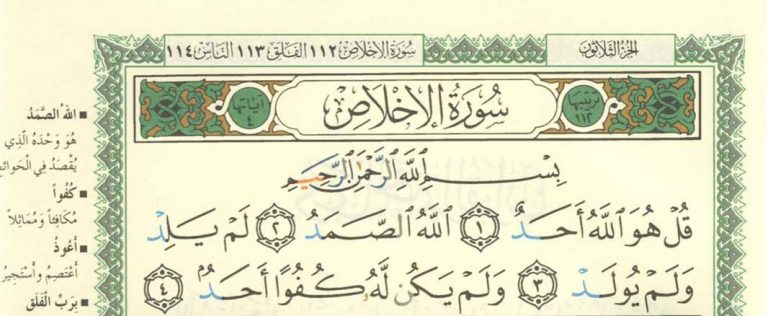 الجزء الثلاثون
سورة الإخلاص ١١٢ الفلق ١١٣ الناس ١١٤
ترتيبها
١١٢
سُورَةُ الإِخْلَاصِ
آيَاتُها
٤
بِسْمِ ٱللَّهِ ٱلرَّحْمَٰنِ ٱلرَّحِيمِ
قُلْ هُوَ ٱللَّهُ أَحَدٌ ١ ٱللَّهُ ٱلصَّمَدُ ٢ لَمْ يَلِدْ
وَلَمْ يُولَدْ ٣ وَلَمْ يَكُن لَّهُۥ كُفُوًا أَحَدٌۢ ٤
■ اللهُ الصَّمَدُ
هُوَ وَحْدَهُ الَّذِي
يُقْصَدُ فِي الْحَوائِج
■ كُفُواً
مُكَافِئاً وَمُمَاثِلاً
■ أَعُوذُ
أَعْتَصِمُ وأَسْتَجِيرُ
■ بِرَبِّ الْفَلَقِ